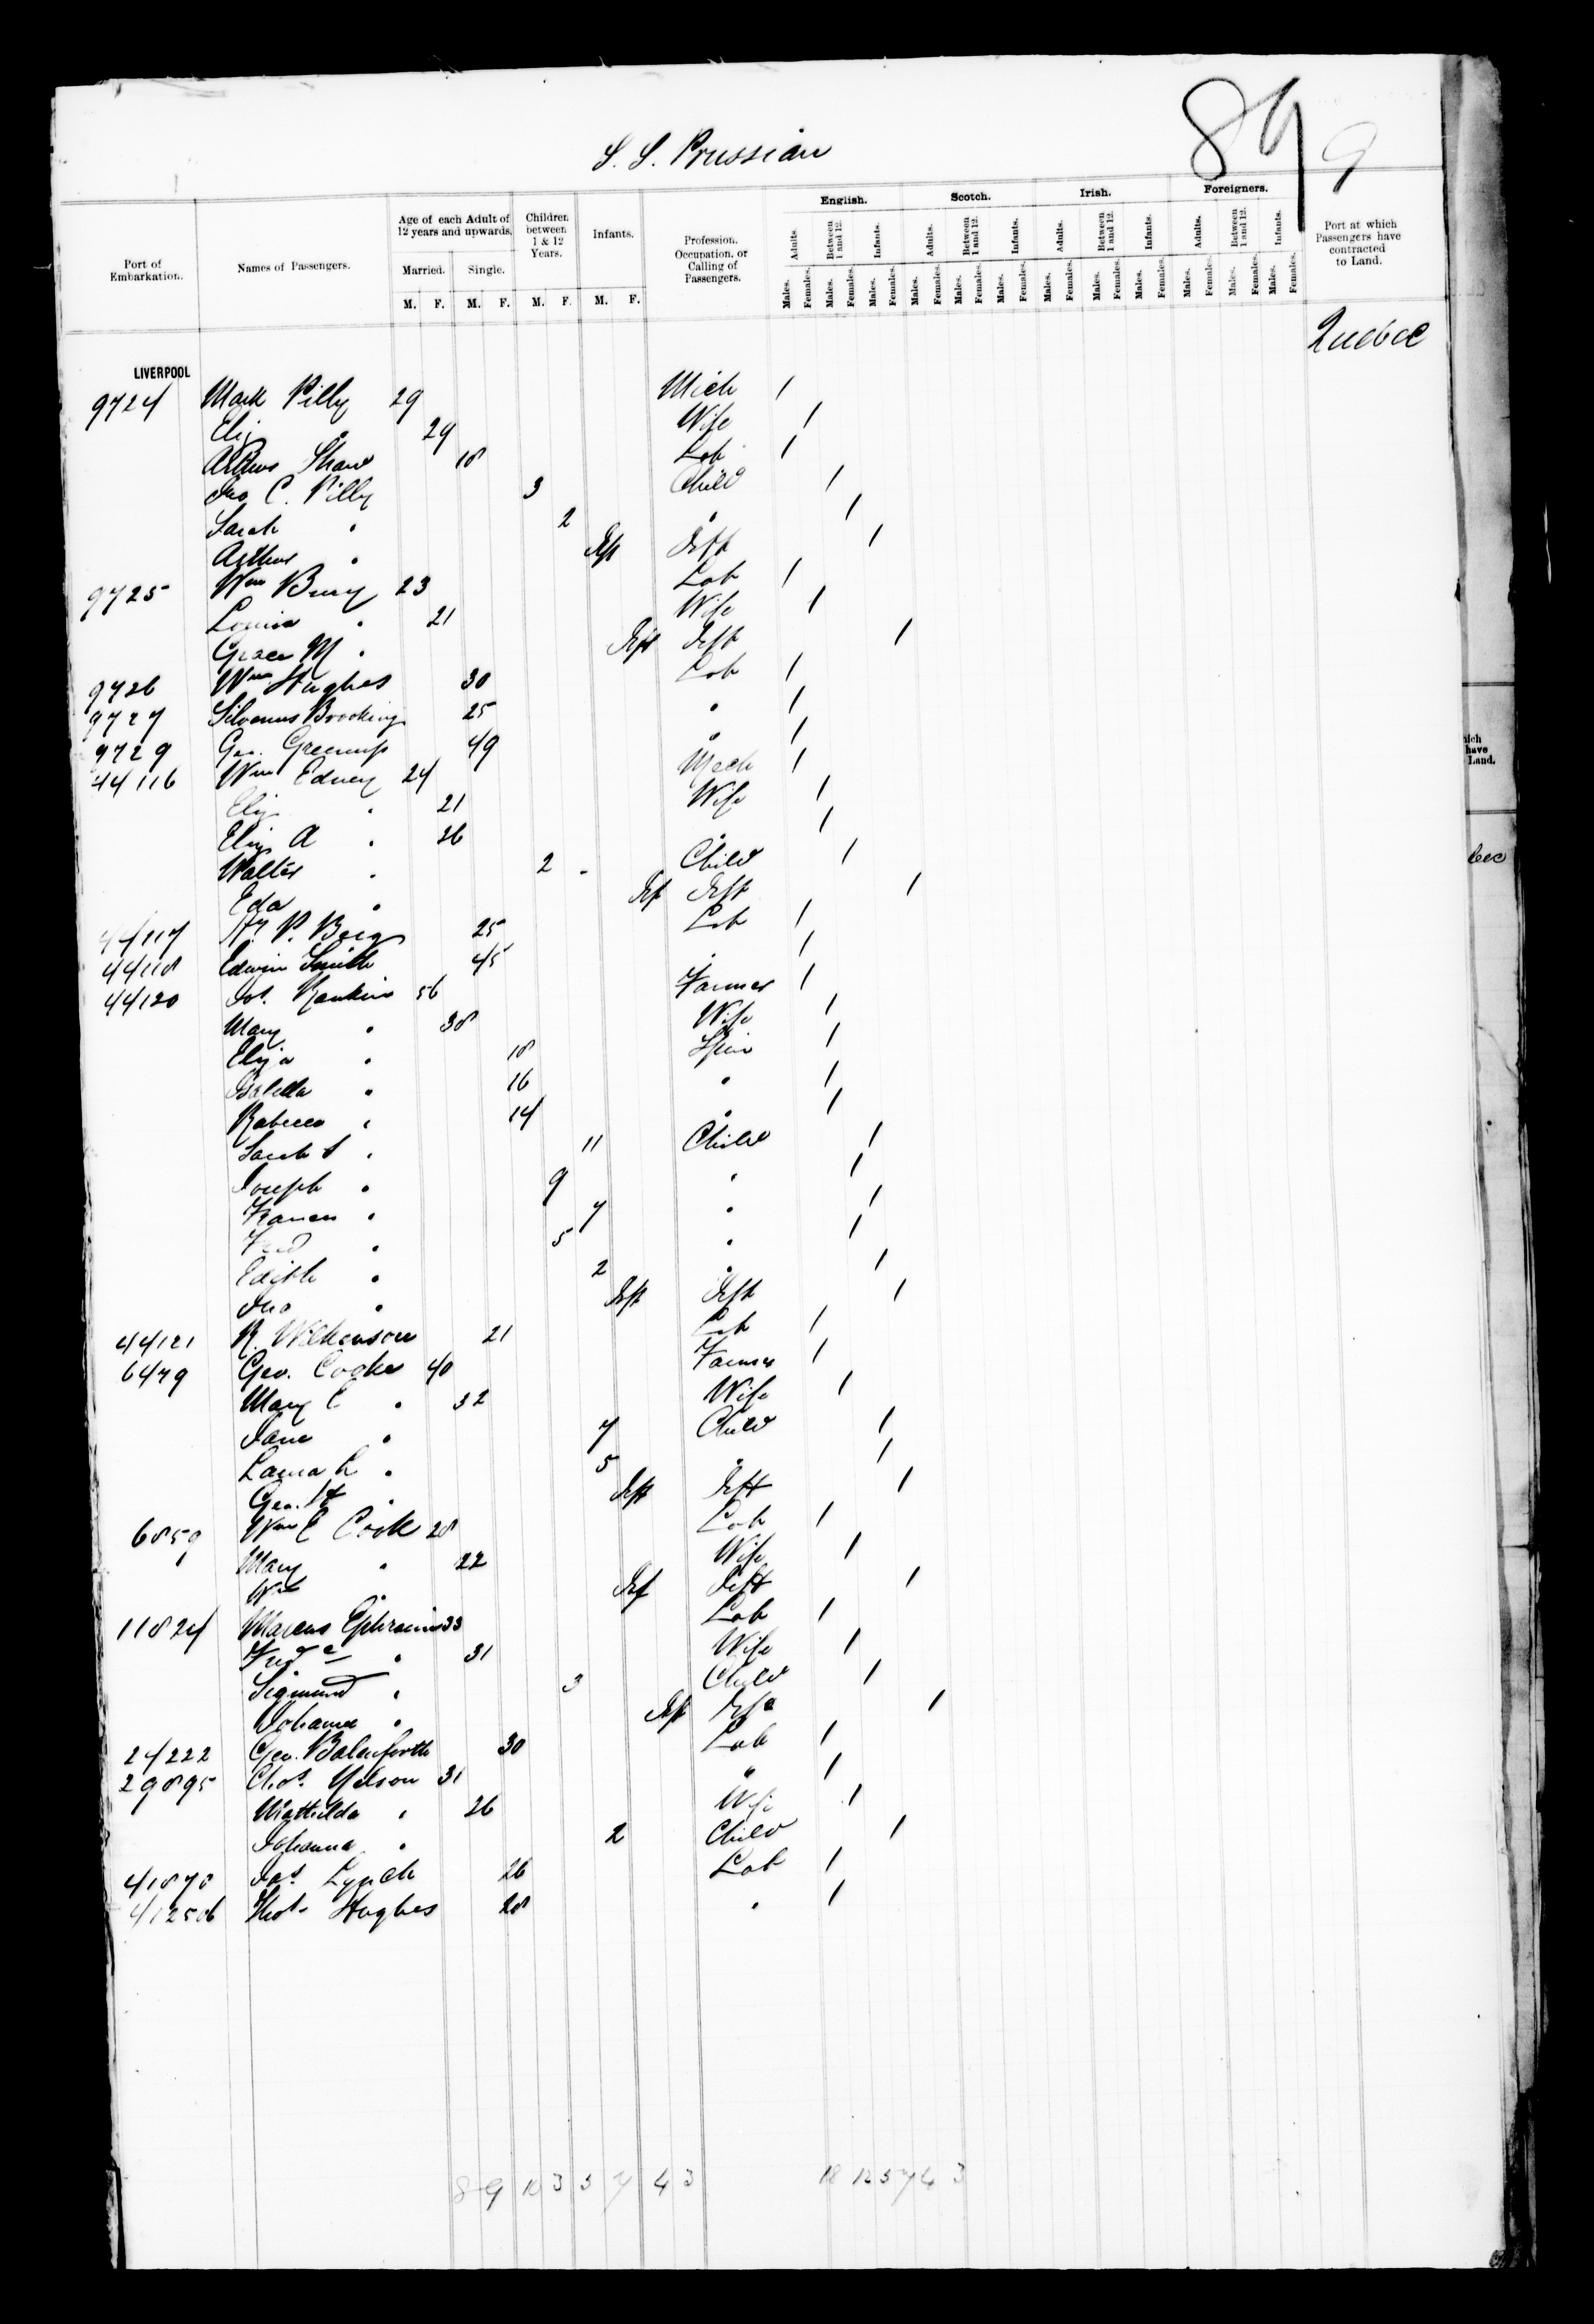 89
9
S. S. Prussian
Port of Embarkation. Names of Passengers. Age of each Adult of 12 years and upwards. Married. M. F. Single. M. F. Children between 1 & 12 Years. M. F. Infants. M. F. Profession, Occupation, or Calling of Passengers. English. Scotch. Irish. Foreigners. Adults. Between 1 and 12. Infants. Males. Females. Port at which Passengers have contracted to Land.
Quebec
LIVERPOOL
9724 Mark Pilly 29 Mich 1
Eliz " 29 Wife 1
Shaw 18 Lab 1
Jno C. Pilly 3 Child 1
Sarah " 2 " 1
Arthur " Inft Inft 1
9725 Wm Bury 23 Lab 1
Louisa " 21 Wife 1
Grace M " Inft Inft 1
9726 Wm Hughes 30 Lab 1
9727 Silvanus Brooking 25 " 1
9729 Geo. Greenup 49 " 1
44116 Wm Edney 24 Mech 1
Eliz " 21 Wife 1
Eliz A " 26 " 1
Walter " 2 Child 1
Eda " Inf Inft 1
44117 Hy P. Berg 25 Lab 1
44118 Edwin Smith 45 " 1
44120 Jos. Rankin 56 Farmer 1
Mary " 38 Wife 1
Eliza " 18 Spin 1
Isabella " 16 " 1
Rebecca " 14 " 1
Sarah S " 11 Child 1
Joseph " 9 " 1
Frances " 7 " 1
Fred " 5 " 1
Edith " 2 " 1
Jno " Inft Inft 1
44121 R. Wilkenson 21 Lab 1
6479 Geo. Cooke 40 Farmer 1
Mary E " 32 Wife 1
Jane " 7 Child 1
Laura L " 5 " 1
Geo. H " Inft Inft 1
6859 Wm E Cook 28 Lab 1
Mary " 22 Wife 1
Wm " Inf Inft 1
11824 Marcus Ephraim 33 Lab 1
Fredc " 31 Wife 1
Sigmund " 3 Child 1
Johanna " Inft Inft 1
24222 Geo. Balmforth 30 Lab 1
29895 Chas. Nelson 31 " 1
Mathilda " 26 Wife 1
Johanna " 2 Child 1
41878 Jas. Lynch 26 Lab 1
41256 Thos. Hughes 28 " 1
8 9 10 3 5 7 4 3 18 12 5 7 4 3
hich have Land.
bec